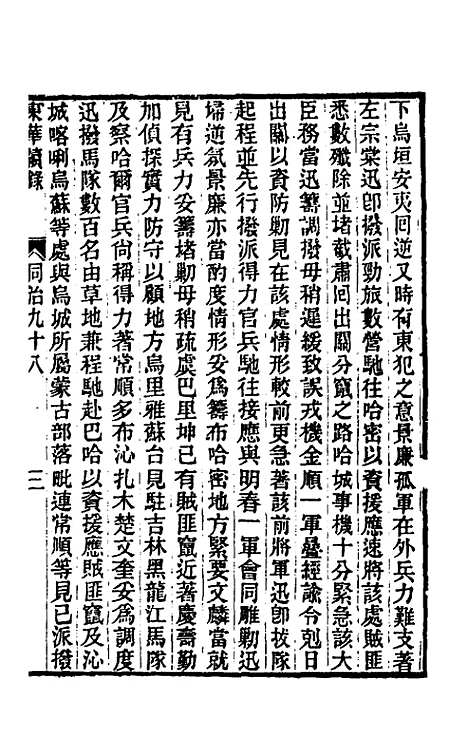 下烏垣安夾回逆又時有東犯之意景廉孤軍在外兵力難支著
左宗棠迅卽撥派勁旅數營馳往哈密以資援應速將該處賊匪
悉數殲除並堵截肅回出關分竄之路哈城事機十分緊急該大
臣務當迅籌調撥毋稍遲緩致誤戎機金順一軍疊經諭令剋日
出關以資防勦見在該處情形較前更急著該前將軍迅卽拔隊
起程並先行撥派得力官兵馳往接應與明春一軍會同雕勦迅
埽逆氛景廉亦當酌度情形妥爲籌布哈密地方緊要文麟當就
見有兵力妥籌堵勦毋稍疏虞巴里坤已有賊匪竄近著慶裔勤
加偵探實力防守以顧地方烏里雅蘇台見駐吉林黑龍江馬隊
及察哈爾官兵尙稱得力著常順多布沁扎木楚文奎妥爲調度
迅撥馬隊數百名由草地兼程馳赴巴哈以資援應賊匪竄及沁
城喀喇烏蘇等處與烏城所屬蒙古部落毗連常順等見已派撥
東華續錄 同治九十八 二